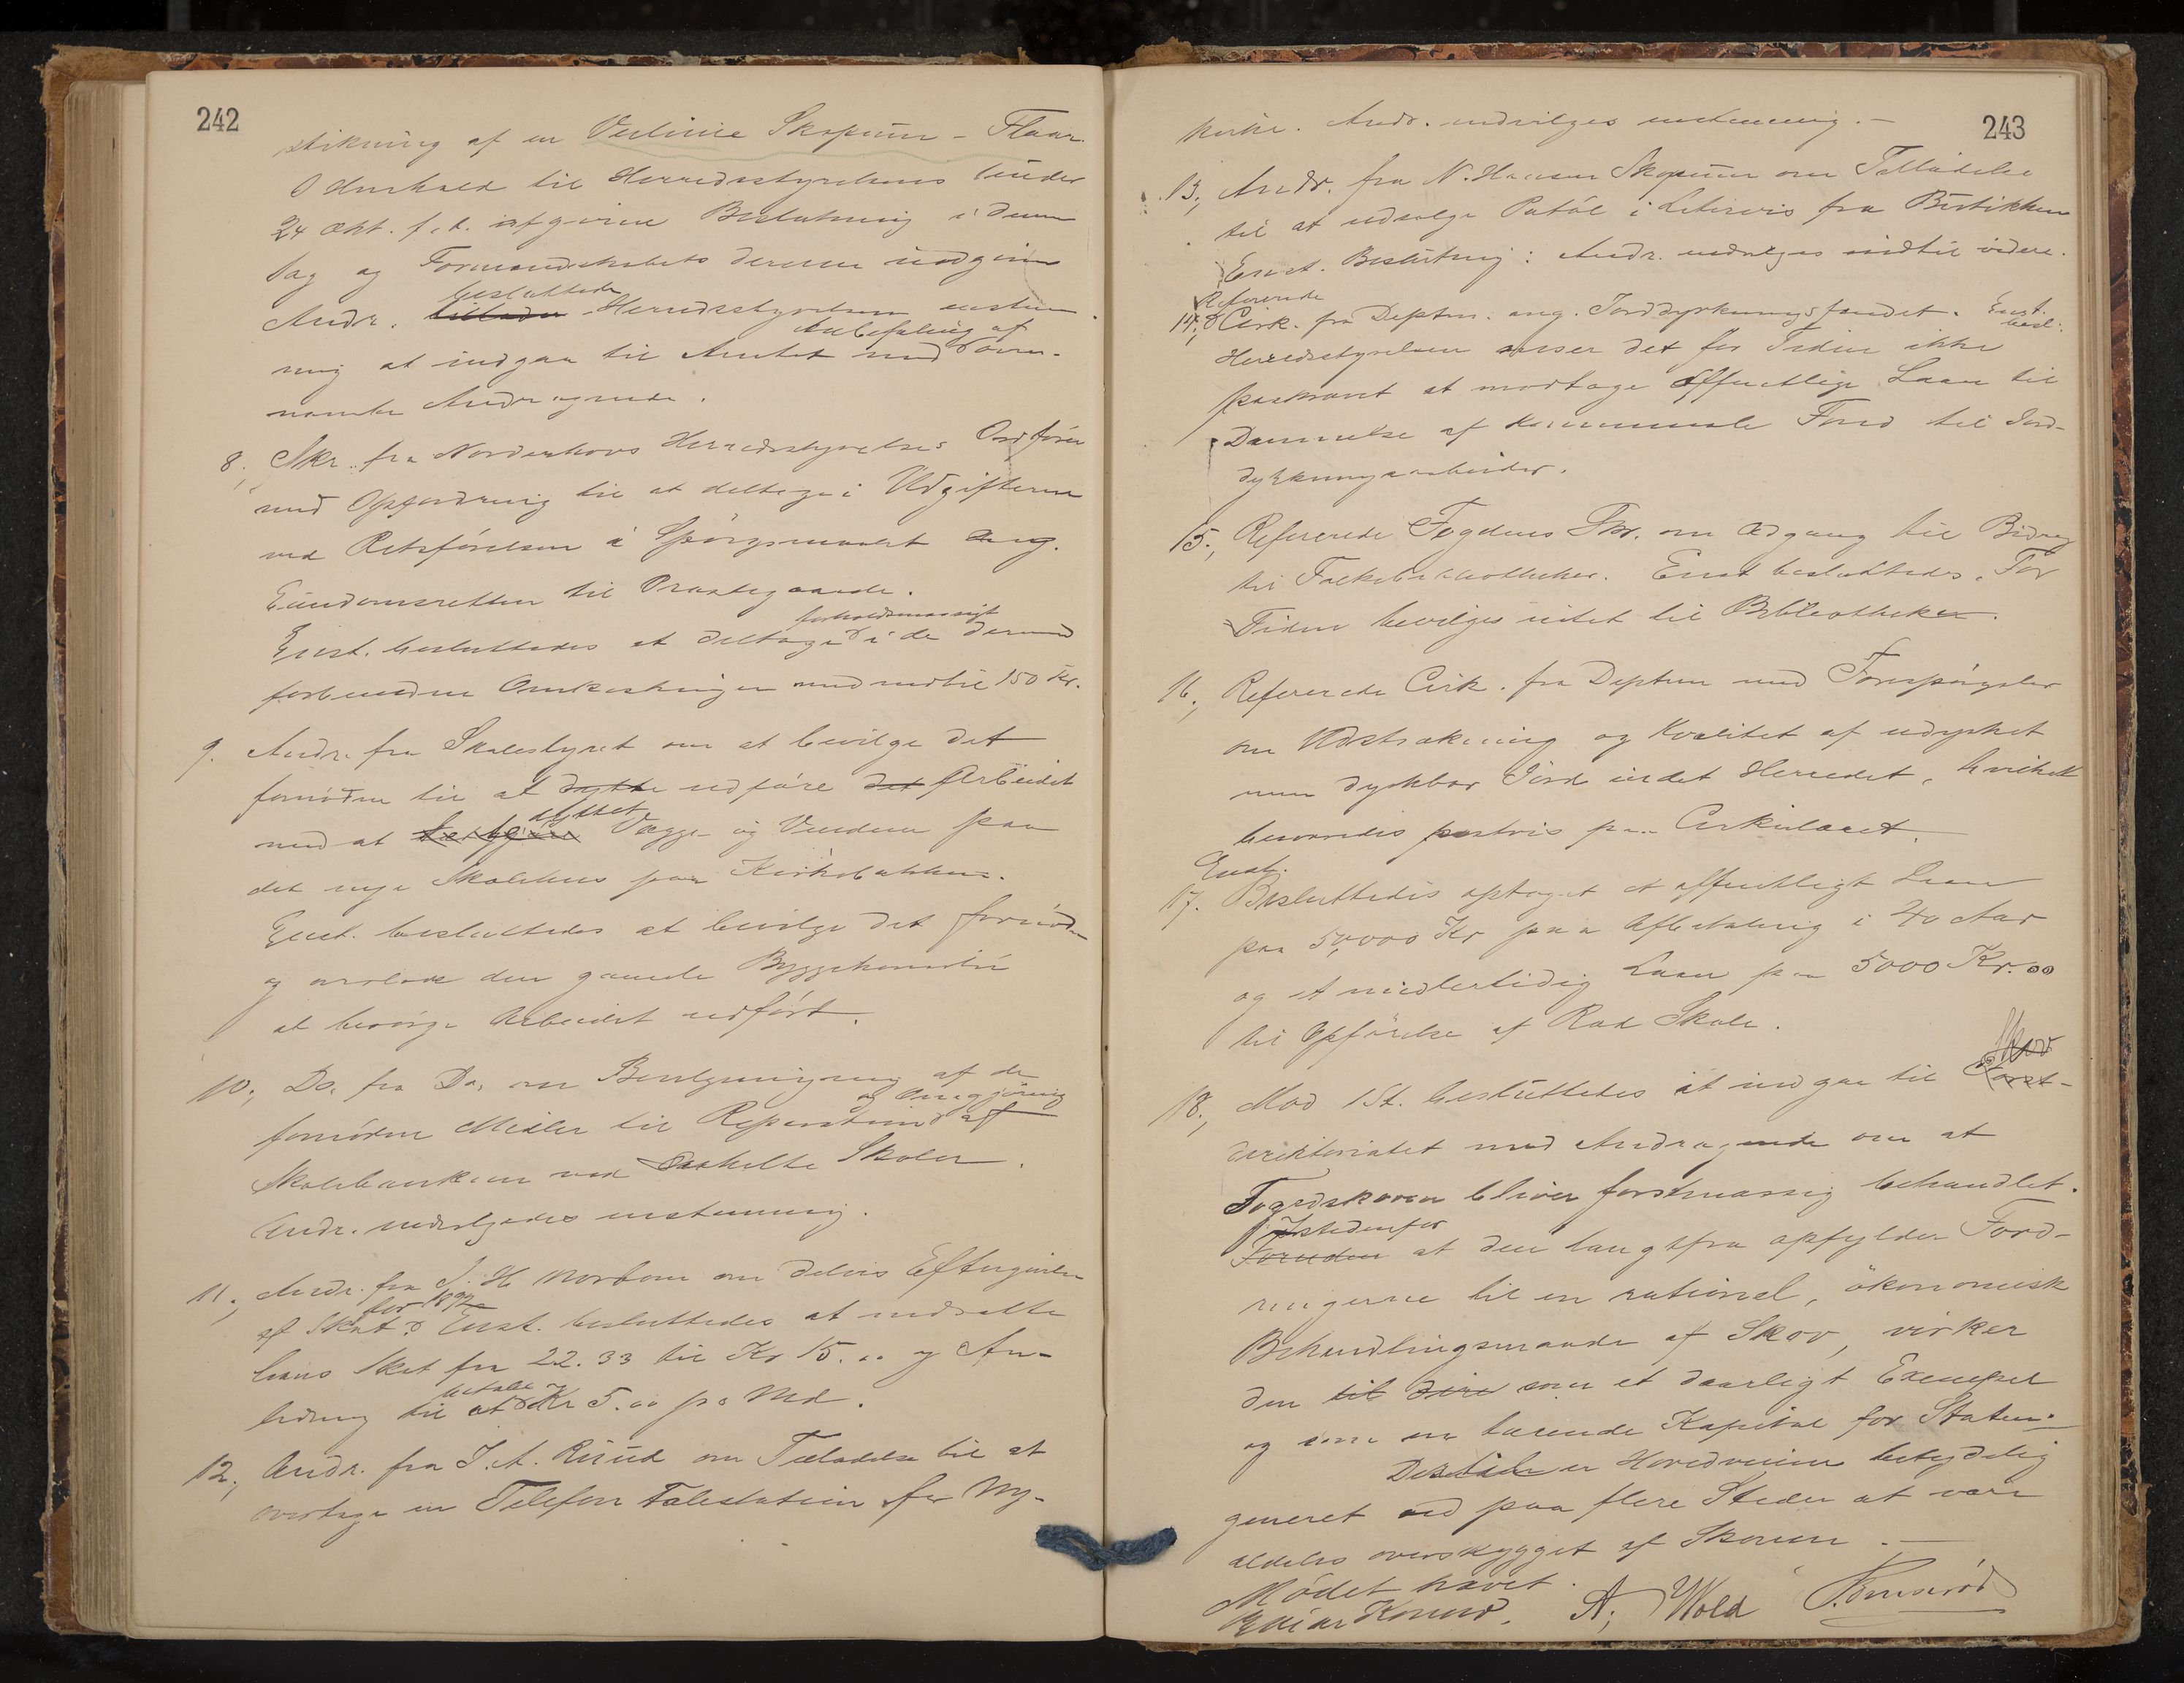 242
stikning af en Veilinie Skopum - Flaar.
I Henhold til Herredsstyrelsens under
24 Okt. f.A. afgivne Beslutning i denne
Sag og Formandskabets derom indgivne
Andr. besluttede Herredsstyrelsen enstem-
mig at indgaa til Amtet med Anbefaling af oven-
nævnte Andragende.
8., Skr. fra Norderhovs Herredsstyrelses Ordfører
med Opfordring til at deltage i Udgifterne
ved Retsførelsen i Spørgsmaalet ang.
Eiendomsretten til Præstegaarde.
Enst. besluttedes at deltage forholdsmæssigt i de dermed
forbundne Omkostninger med indtil 150 Kr.
9. Andr. fra Skolestyret om at bevilge det
fornødne til at udføre Arbeidet
med at afjthet Vægge og Vinduer paa
det nye Skolehus paa Kirkebakken.
Enst. besluttedes at bevilge det fornødne
og anslog den gamle Byggekomite
at besørge Arbeidet udført.
10., Do. fra Do. om Bevilgning af de
fornødne Midler til Reparation og Omgjøring af
Skolebænkene ved Skoler.
Andr. indvilgedes enstemmig.
11., Andr. fra J. H. Norbom om delvis Eftergivelse
af Skat for 1892. Enst. besluttedes at nedsætte
hans Skat fra 22.33 til Kr 15.00 og An-
ledning til at betale Kr 5.00 pr. Md.
12., Andr. fra J. A. Ruud om Tilladelse til at
overtage en Telefon Talestation for Ny-
243
kirke. Andr. indvilges enstemmig. —
13., Andr. fra N. Hansen Skopum om Tilladelse
til at udsælge Putøl i Litervis fra Butikken
Enst. Beslutning: Andr. indvilges indtil videre.
14., Refererede Cirk. fra Deptm. ang. Jorddyrkningsfondet. Enst. besl.
Herredsstyrelsen anser det for Tiden ikke
paakrævet at modtage offentlige Laan til
Dannelse af kommunale Fond til Jord-
dyrkningsarbeider.
15., Refererede Fogdens Skr. om Adgang til Bidrag
til Folkebibliotheker. Enst besluttedes. For
Tiden bevilges intet til Bibliotheker.
16., Refererede Cirk. fra Deptm med Forespørgsler
om Udstrækning og Kvalitet af udyrket
men dyrkbar Jord i det Herredet, hvilket
besvaredes postvis paa Cirkulæret.
17. Enst. Besluttedes optaget et offentligt Laan
paa 5,000 Kr paa Afbetaling i 40 Aar
og et midlertidig Laan paa 5000 Kr. 00
til Opførelse af Rød Skole.
18., Mod 1 St. besluttedes at indgaa til Skov
direktoriatet med Andragende om at
Fogedskoven bliver forstmæssig behandlet.
Istedenfor at den langtfra opfylder Ford-
ringerne til en rationel, økonomisk
Behandlingsmaade af Skov, virker
den som et daarligt Exempel
og som en tærende Kapital for Staten.
Desuden er Hovedveien betydelig
generet ved paa flere Steder at være
aldeles overskygget af Skoven. —
Mødet hævet.
A. Wold